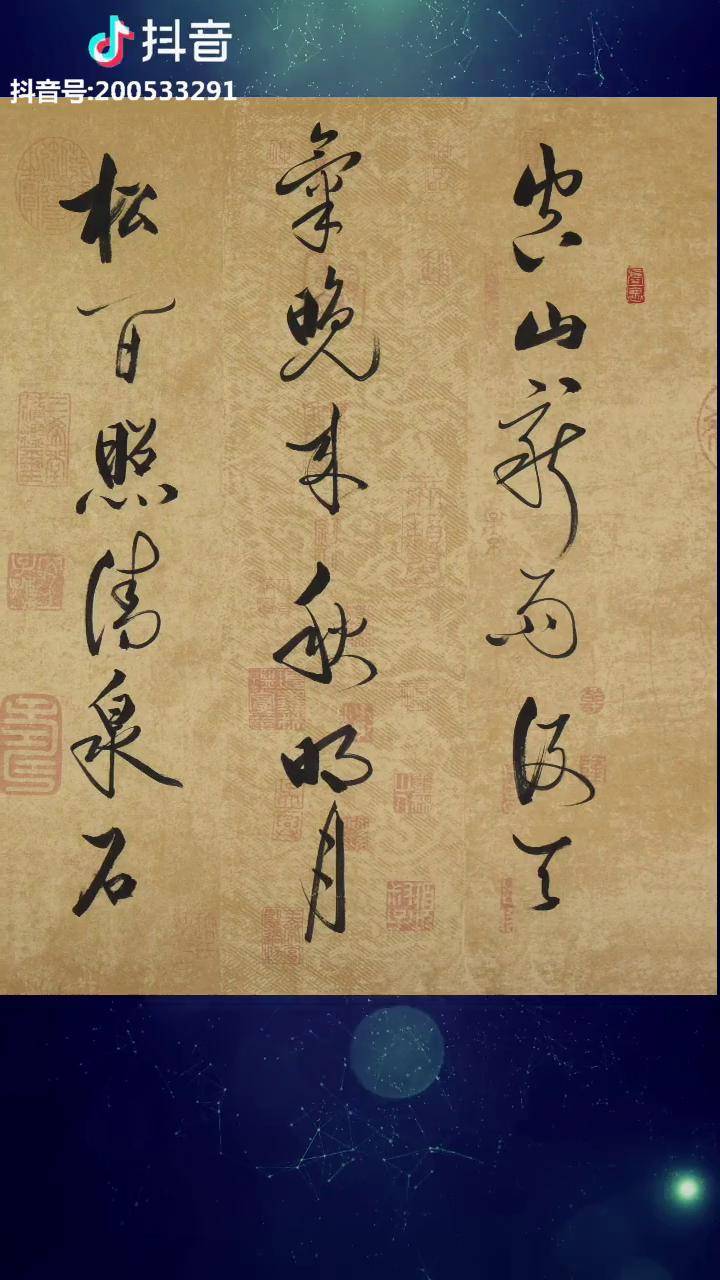 抖音
抖音号:200533291
空山新雨後天
氣晚来秋明月
松間照清泉石